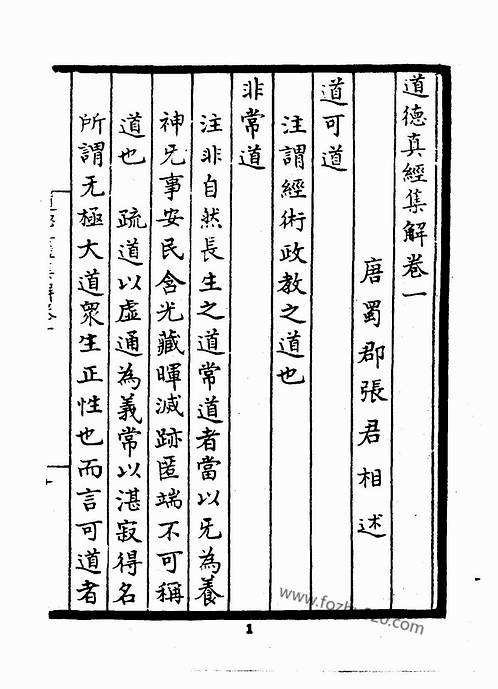 道德真經集解卷一
唐蜀郡張君相述
道可道
注謂經術政教之道也
非常道
注非自然長生之道常道者當以旡為養
神旡事安民含光藏暉滅跡匿端不可稱
道也 疏道以虛通為義常以湛寂得名
所謂无極大道眾生正性也而言可道者
1
www.fozhu920.com